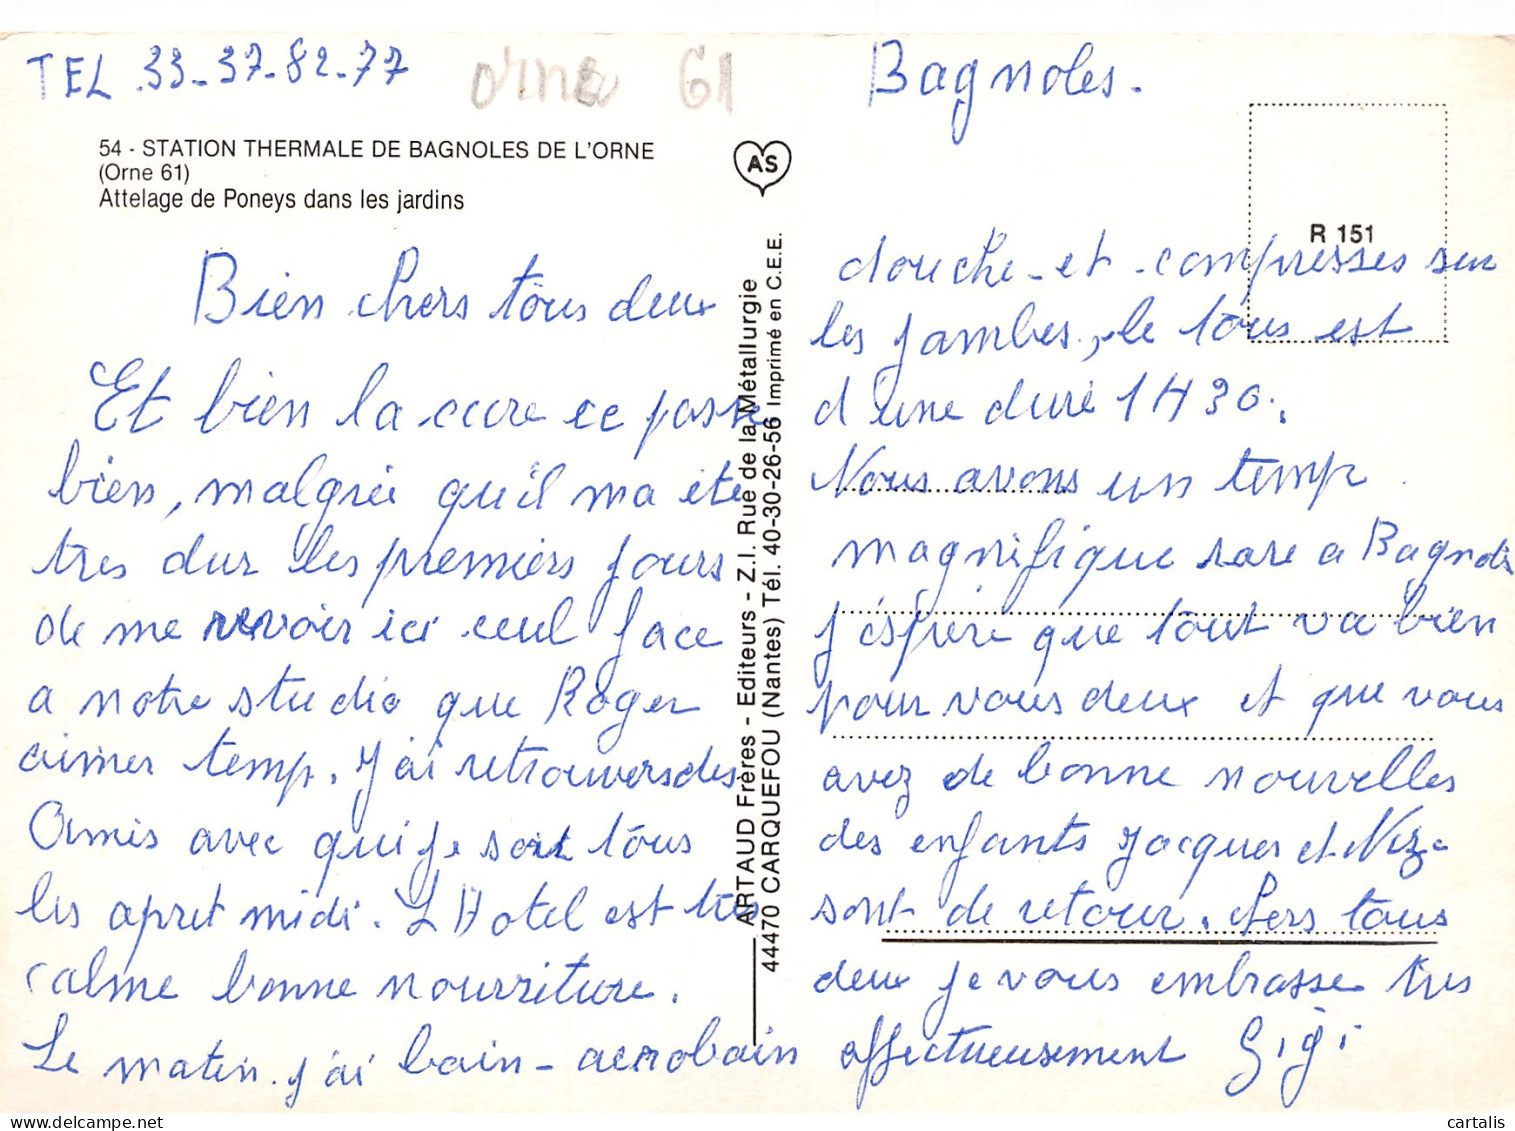 TEL .33-37-82-77
Orne 61
54 - STATION THERMALE DE BAGNOLES DE L'ORNE
(Orne 61)
Attelage de Poneys dans les jardins
Bien chers tous deux
Et bien la cure ce passe
bien, malgrée qu'il ma été
tres dur les premiers jours
de me revoir ici ceul face
a notre studio que Roger
aimer temp. J'ai retrouver des
Amis avec qui je sort tous
les apret midi. L Hotel est très
calme bonne nourriture.
Le matin. j'ai bain - aerobain
AS
ARTAUD Frères - Editeurs - Z.I. Rue de la Métallurgie
44470 CARQUEFOU (Nantes) Tél. 40-30-26-56 Imprimé en C.E.E.
Bagnoles.
R 151
douche - et - compresses sur
les jambes, le tous est
d'une duré 1H30.
Nous avons un temp
magnifique rare a Bagnoles
j'éspère que tout va bien
pour vous deux et que vous
avez de bonne nouvelles
des enfants Jacques et
sont de retour. Chers tous
deux je vous embrasse tres
affectueusement Gigi
cartalis